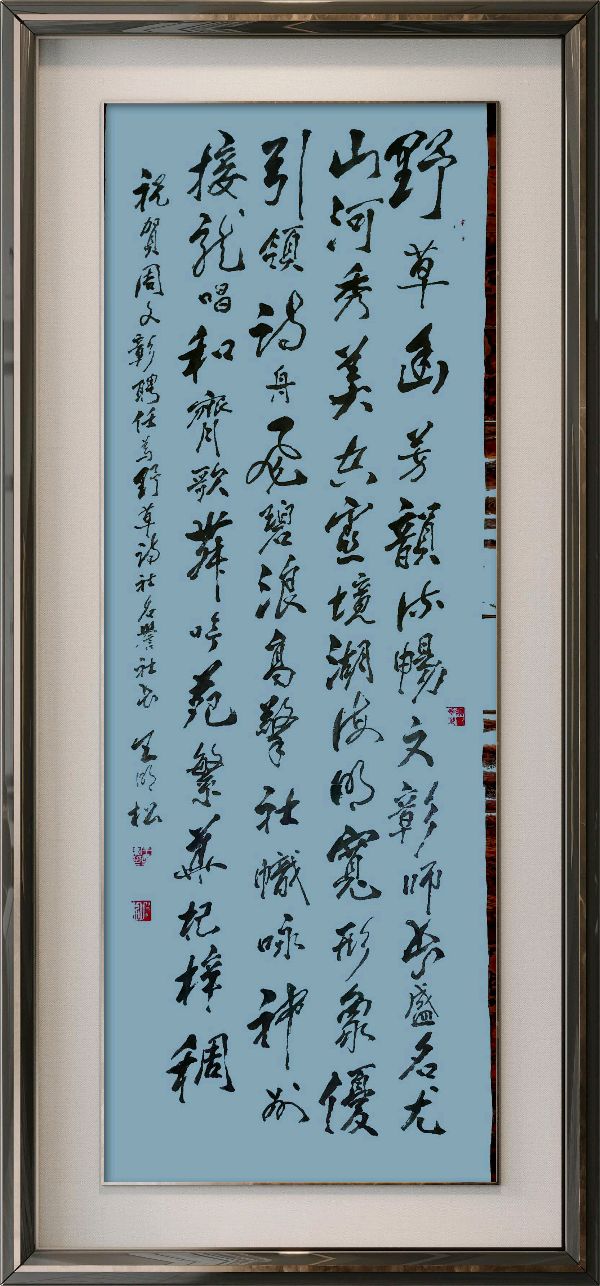 野草幽芳韻流暢文彰師長盛名尤
山河秀美空靈境湖海明寬形象優
引領詩舟飛碧浪高擎社幟咏神州
接龍唱和齊歌舞吟苑繁華杞梓稠
祝賀周文彰聘任為野草詩社名譽社長 明松